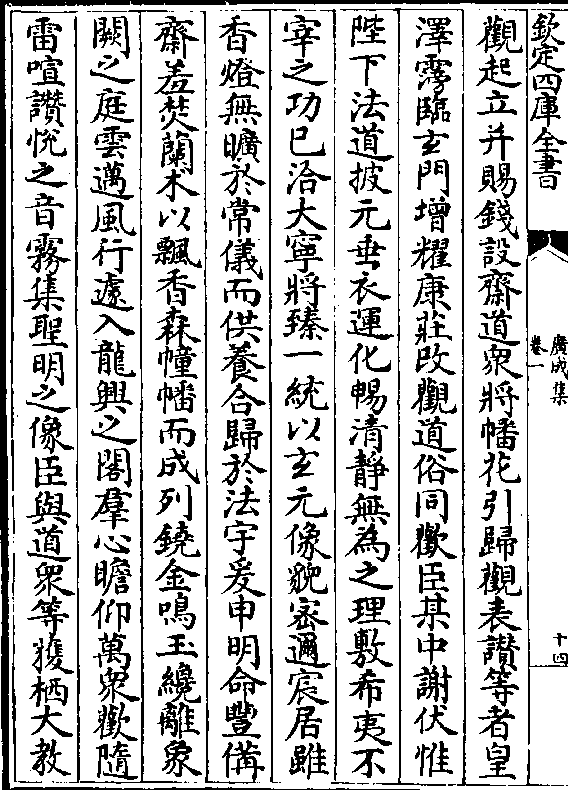 欽定四庫全書
廣成集
卷一
十四
觀起立并賜錢設齋道衆將幡花引歸觀表讃等者皇
澤霶臨玄門增耀康莊改觀道俗同歡臣某中謝伏惟
陛下法道披元垂衣運化暢清靜無為之理敷希夷不
宰之功已洽大寧將臻一統以玄元像貌宻邇宸居雖
香燈無曠於常儀而供養合歸於法宇爰申明命豐備
齋羞焚蘭木以飄香森幢幡而成列鐃金鳴玉纔離象
闕之庭雲邁風行遽入龍興之閣羣心瞻仰萬衆歡隨
雷喧讃悅之音霧集聖明之像臣與道衆等獲栖大教